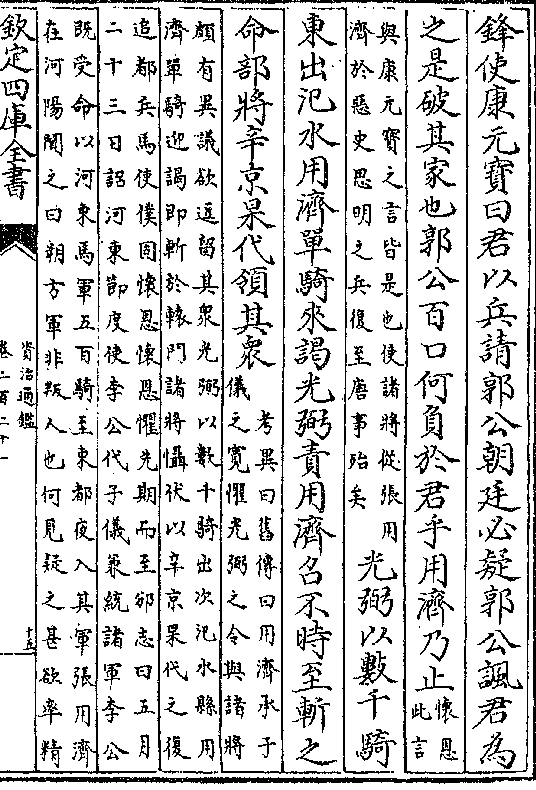 鋒使康元寶曰君以兵請郭公朝廷必疑郭公諷君為
之是破其家也郭公百口何負於君乎用濟乃止
懷恩
此言
與康元寶之言皆是也使諸將從張用
濟於惡史思明之兵復至唐事殆矣
光弼以數千騎
東出汜水用濟單騎來謁光弼責用濟召不時至斬之
命部將辛京杲代領其衆
考異曰舊傳曰用濟承子
儀之寛懼光弼之令與諸將
頗有異議欲逗留其衆光弼以數千騎出次汜水縣用
濟單騎迎謁即斬於轅門諸將懾伏以辛京杲代之復
追都兵馬使僕固懷恩懷恩懼先期而至邠志曰五月
二十三日詔河東節度使李公代子儀兼統諸軍李公
既受命以河東馬軍五百騎至東都夜入其軍張用濟
在河陽聞之曰朔方軍非叛人也何見疑之甚欲率精
欽定四庫全書
資治通鑑
卷二百二十一
十五